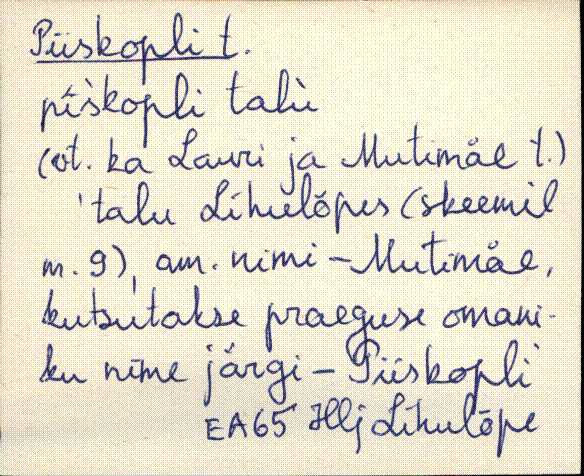 Piiskopli t.
pīskopli talù
(vt. ka Lauri ja Mutimäe t.)
talu Lihulõpes (skeemil
m. 9), am. nimi - Mutimäe,
kutsutakse praeguse omani-
ku nime järgi - Piiskopli
EA65 Hlj Lihulõpe